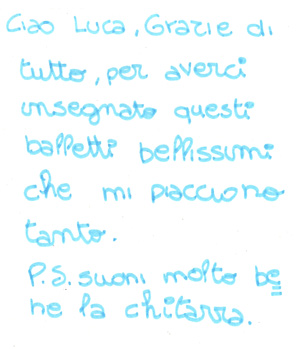 Ciao Luca, Grazie di
tutto, per averci
insegnato questi
balletti bellissimi
che mi piacciono
tanto.
P.S. suoni molto be
ne la chitarra.